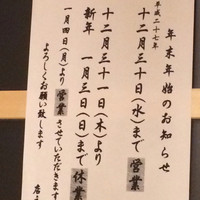 平成二十七年
年末年始のお知らせ
十二月三十日(水)まで営業
十二月三十一日(木)より
新年 一月三日(日)まで休業
一月四日(月)より営業させていただきます
よろしくお願い致します
店